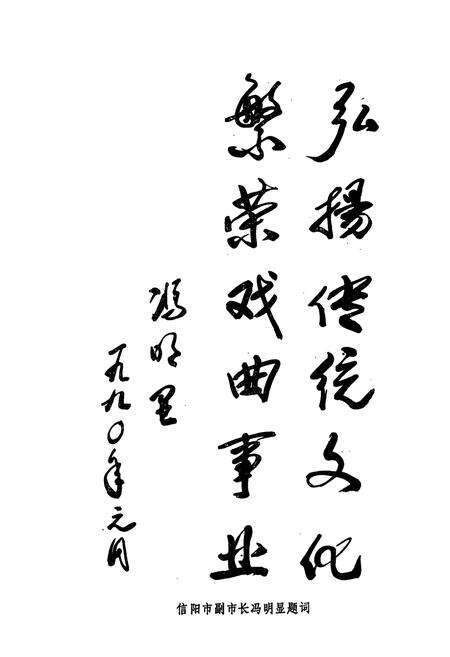 弘揚传统文化
繁荣戏曲事业
冯明显
一九九〇年元月
信阳市副市长冯明显题词